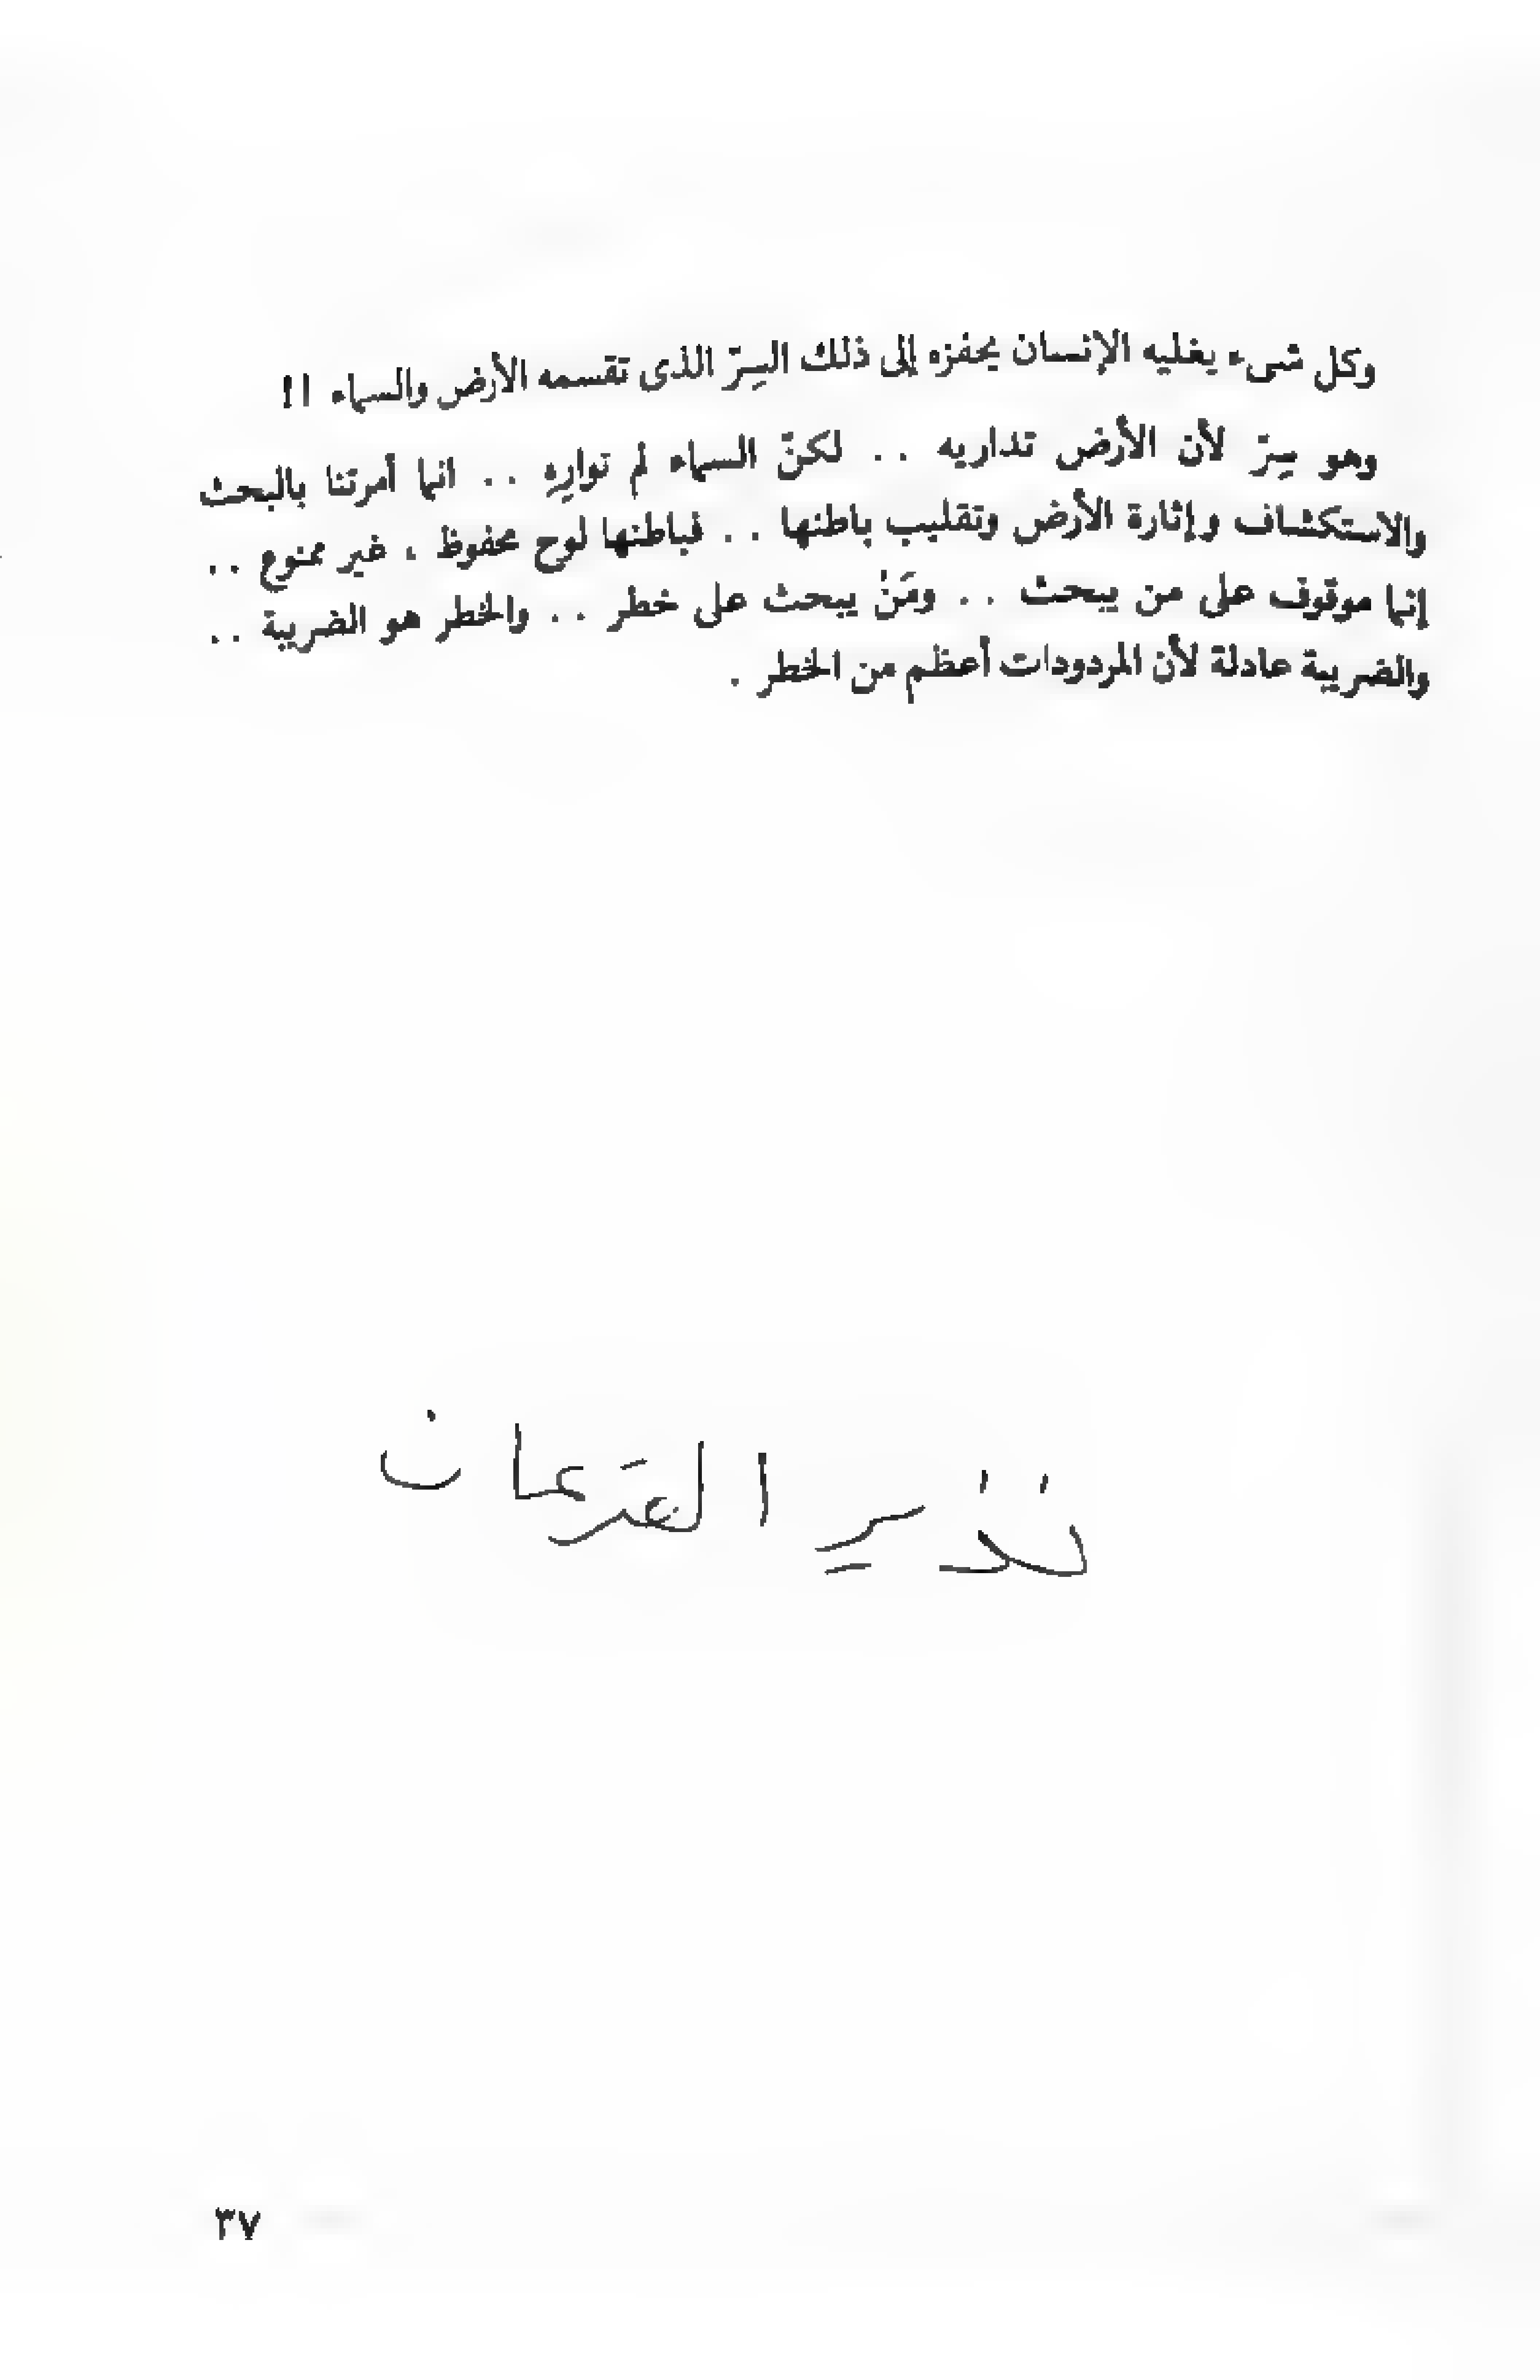 وكل شىء يغليه الإنسان يحفزه إلى ذلك السِرّ الذى تقسمه الأرض والسماء !!
وهو سِرّ لأن الأرض تداريه . . لكنّ السماء لم توارِهِ . . انما أمرتنا بالبحث
والاستكشاف وإثارة الأرض وتقليب باطنها . . فباطنها لوح محفوظ ، غير ممنوع . .
إنما موقوف على من يبحث . . ومَنْ يبحث على خطر . . والخطر هو الضريبة . .
والضريبة عادلة لأن المردودات أعظم من الخطر .
نذير
٣٧